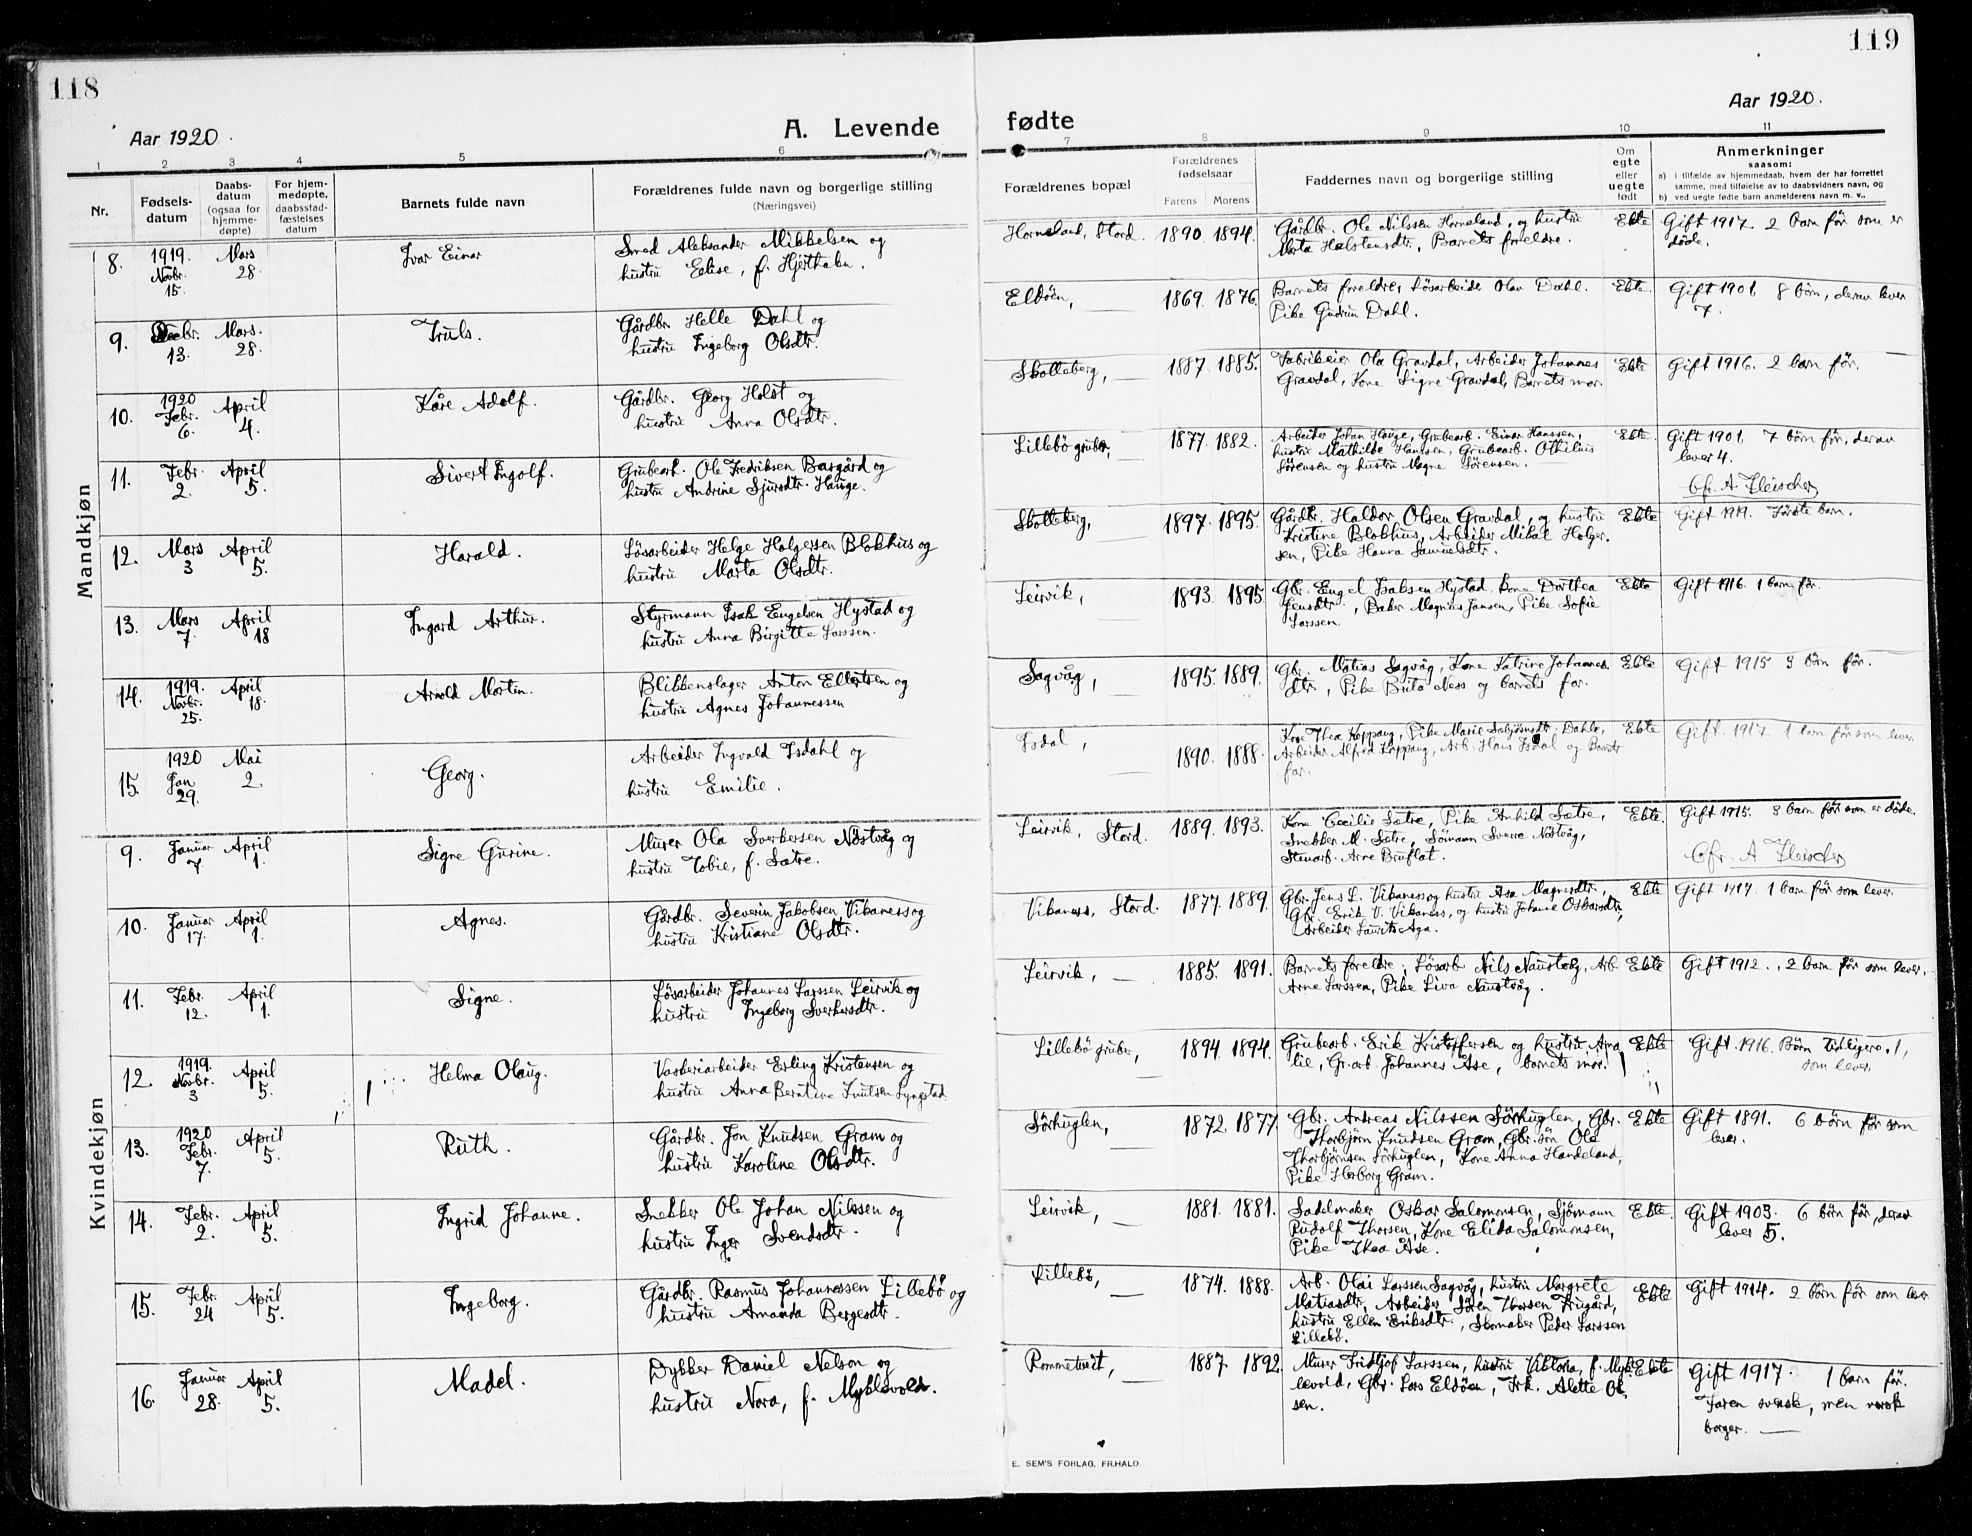 118
Aar 1920.
A. Levende
1 2 3 4 5 6
Nr.
Fødsels-
datum
Daabs-
datum
(ogsaa for
hjemme-
døpte)
For hjem-
medøpte,
daabsstad-
fæstelses
datum
Barnets fulde navn
Forældrenes fulde navn og borgerlige stilling
(Næringsvei)
Mandkjøn
8. 1919. Novbr. 15. Mars 28. Ivar Einar
Smed Aleksander Mikkelsen og
hustru Edise, f. Hjerthaln.
9. Decbr. 13. Mars. 28. Truls.
Gårdbr. Helle Dahl og
hustru Ingeborg Olsdtr.
10. 1920 Febr. 6. April 4. Kåre Adolf.
Gårdbr. Georg Holst og
hustru Anna Olsdtr.
11. Febr. 2. April 5. Sivert Ingolf.
Grubearb. Ole Fredriksen Basgård og
hustru Andrine Sjursdtr. Hauge.
12. Mars 3 April 5. Harald.
Løsarbeider Helge Holgersen Blokhus og
hustru Marta Olsdtr.
13. Mars 7. April 18 Ingard Arthur.
Styrmann Isak Engelsen Hystad og
hustru Anna Birgitte Larssen.
14. 1919. Novbr. 25. April 18. Arnold Morten.
Blikkenslager Anton Ellertsen og
hustru Agnes Johannessen
15. 1920 Jan 29. Mai 2. Georg.
Arbeider Ingvald Isdahl og
hustru Emilie.
Kvindekjøn
9. Januar 7. April 1. Signe Gurine.
Murer Ola Sverkersen Nöstvåg og
hustru Tobie, f. Sætre.
10. Januar 17. April 1. Agnes.
Gårdbr. Severin Jakobsen Vikaness og
hustru Kristiane Olsdtr.
11. Febr. 12. April 1. Signe.
Løsarbeider Johannes Larssen Leirvik og
hustru Ingeborg Sverkersdtr.
12. 1919. Novbr. 3 April 5. Helma Olaug.
Vaskeriarbeider Erling Kristensen og
hustru Anna Berntine Knutsen Lyngstad
13. 1920 Febr. 7. April 5. Ruth.
Gårdbr. Jon Knudsen Gram og
hustru Karoline Olsdtr.
14. Febr. 2. April 5. Ingrid Johanne.
Snekker Ole Johan Nilssen og
hustru Inger Svendsdtr.
15. Febr. 24 April 5. Ingeborg.
Gårdbr. Rasmus Johannessen Lillebö og
hustru Amanda Bergesdtr.
16. Januar 28. April 5. Madel.
Dykker Daniel Nelson og
hustru Nora, f. Myklevold.
119
Aar 1920.
fødte
7 8 9 10 11
Forældrenes bopæl
Forældrenes
fødselsaar
Farens Morens
Faddernes navn og borgerlige stilling
Om
egte
eller
uegte
født
Anmerkninger
saasom:
a) i tilfælde av hjemmedaab, hvem der har forrettet
samme, med tilføielse av to daabsvidners navn, og
b) ved uegte fødte barn anmelderens navn m. v..
Horneland, Stord. 1890. 1894. Gårdbr. Ole Nilssen Horneland, og hustru
Marta Halstensdtr, Barnets foreldre. Ekte Gift 1917. 2 barn før som er
döde.
Eldöen, — 1869. 1876. Barnets foreldre, Løsarbeider Olav Dahl.
Pike Gudrun Dahl. Ekte. Gift 1901 8 börn, derav lever
7.
Skolleberg, — 1887. 1885. Fabrikeier Ola Gravdal, Arbeider Johannes
Gravdal, Kone Signe Gravdal, Barnets mor. Ekte Gift 1916. 2 barn før. —
Lillebö gruber, — 1877. 1882. Arbeider Johan Hauge, Grubearb. Einar Hanssen,
hustru Mathilde Hanssen, Grubearb. Othilius
Sörensen og hustru Magne Sörensen. Ekte. Gift 1901 7 börn før, derav
lever 4.
Cfr. A Fleischer
Skolleberg, 1897. 1895. Gårdbr. Haldor Olsen Gravdal, og hustru
Kristine Blokhus, Arbeider Mikal Holger-
sen, Pike Hanna Samuelsdtr. Ekte Gift 1919. Förste barn.
Leirvik, — 1893. 1895 Gbr. Engel Isaksen Hystad. Kone Dorthea
Jensdtr., Baker Magnus Jansen, Pike Sofie
Larssen. Ekte Gift 1916. 1 barn før.
Sagvåg, — 1895. 1889. Gbr. Matias Sagvåg, Kone Katrine Johannes
dtr., Pike Brita Ness og barnets far. Ekte Gift 1915 3 börn før.
Isdal, — 1890. 1888. Kone Thea Koppang, Pike Marie Dahle,
Arbeider Alfred Koppang, Arb. Hans Isdal og Barnets
far. Ekte Gift. 1917 1 barn før som lever
Leirvik, Stord. 1889. 1893. Kone Cecilie Sætre, Pike Anhild Sætre,
Snekker M. Sætre, Sömann Sverre Nöstvåg,
Stenarb. Arne Bruflat. Ekte. Gift 1915. 3 barn før som er døde.
Cfr. A Fleischer
Vikaness, Stord. 1877. 1889. Gbr. Jens L. Vikaness og hustru Åsa Magnesdtr,
Gbr. Erik V. Vikaness, og hustru Johanne Oskarsdtr,
Arbeider Laurits Aga. Ekte Gift 1917. 1 barn før som lever.
Leirvik, — 1885. 1891. Barnets foreldre, Løsarb Nils Naustvåg, Arb
Arne Larssen, Pike Liva Naustvåg. Ekte Gift 1912. 2 barn før som lever.
Lillebö gruber, — 1894. 1894. Grubearb. Erik Kristoffersen og hustru Ama
lie, Gr.arb. Johannes Åse, barnets mor. Ekte Gift. 1916. Börn tidligere. 1,
som lever.
Sörhuglen, — 1872. 1877. Gbr. Andreas Nilssen Sörhuglen, Gbr.
Thorbjörn Knudsen Gram, Gbr. sön Ola
Thorbjörnsen Sörhuglen, Kone Anna Handeland,
Pike Herborg Gram. Ekte Gift 1891. 6 börn før som
lever.
Leirvik, — 1881. 1881. Sadelmaker Oskar Salomonsen, Sjömann
Rudolf Thorsen, Kone Elida Salomonsen,
Pike Thea Åse. Ekte. Gift 1903. 6 börn før, derav
lever 5.
Lillebö, — 1874. 1888. Arb. Olai Larssen Sagvåg, hustru Margrete
Matiasdtr, Arbeider Sören Thorsen Frugård,
hustru Ellen Eriksdtr., Skomaker Peder Larssen
Lillebö. Ekte Gift 1914. 2 börn før som lever
Rommetveit, — 1887. 1892. Murer Fridtjof Larssen, hustru Viktoria, f. Myk-
levold, Gbr. Lars Eldöen, Frk. Alette Ol-
sen. Ekte Gift 1917. 1 barn før.
Faren svensk, men norsk
borger. —
E. SEM'S FORLAG, FR.HALD.